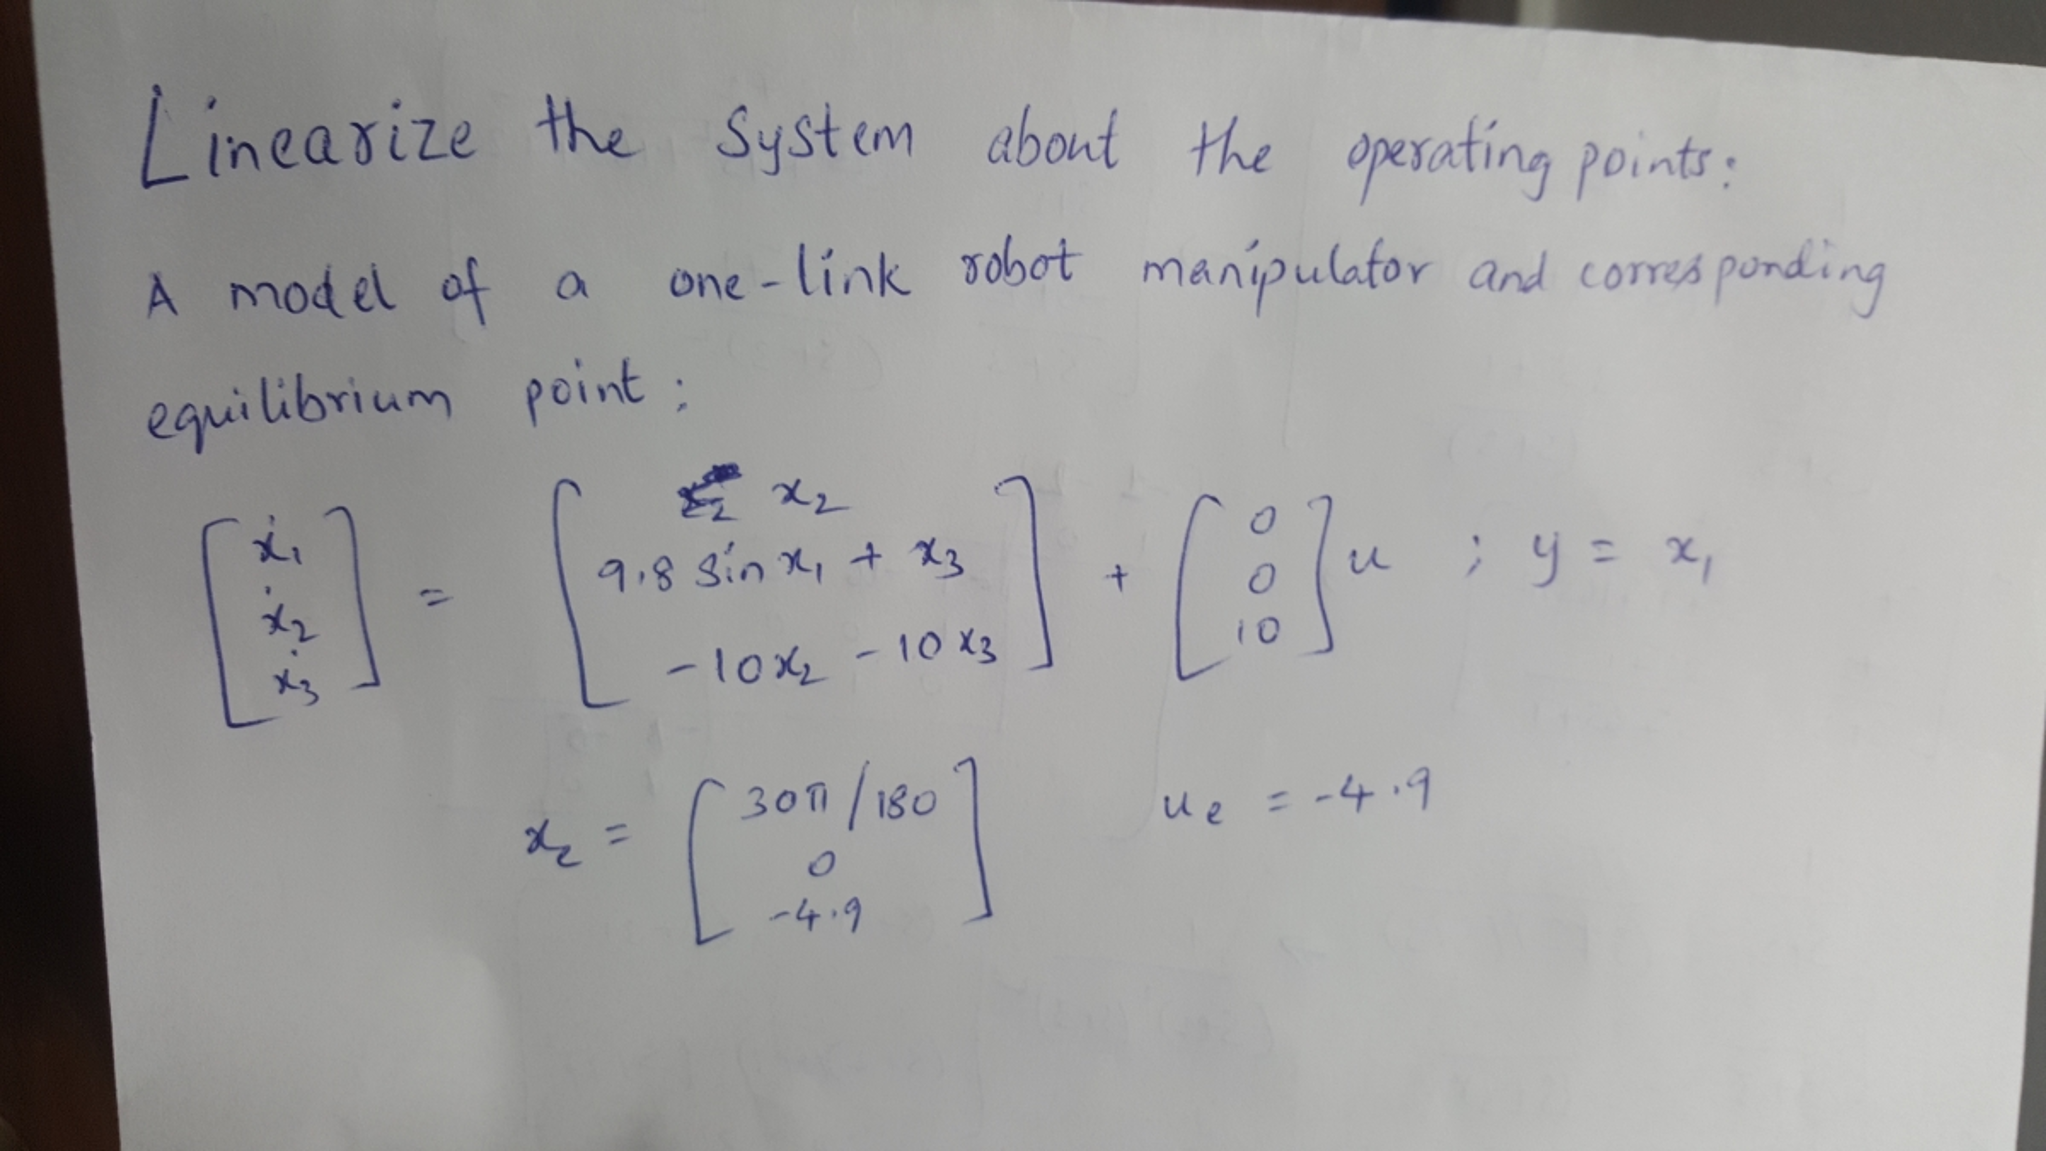 Linearize the System about the operating points:
A model of a one-link robot manipulator and corresponding
equilibrium point:
[ẋ₁ ẋ₂ ẋ₃] = [x₂ 9.8 sin x₁ + x₃ -10x₂ - 10x₃] + [0 0 10] u ; y = x₁
xₑ = [30π/180 0 -4.9] uₑ = -4.9